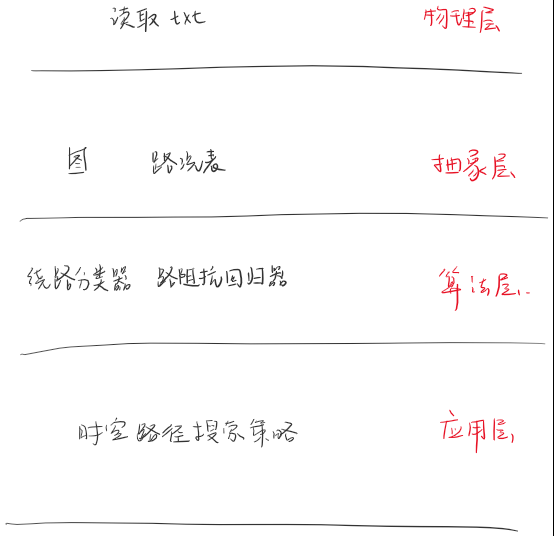 读取 txt 物理层
图 路况表 抽象层
绕路分类器 路阻抗回归器 算法层
时空路径搜索策略 应用层